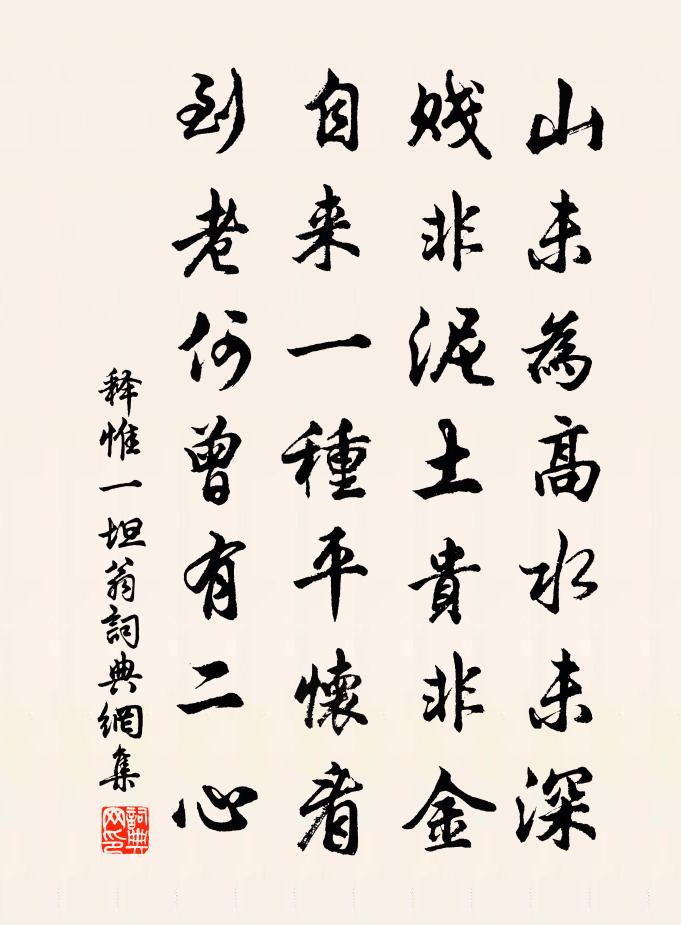 山未為高水未深
賤非泥土貴非金
自来一種平懷者
到老何曾有二心
释惟一坦翁詞典網集
詞典网印